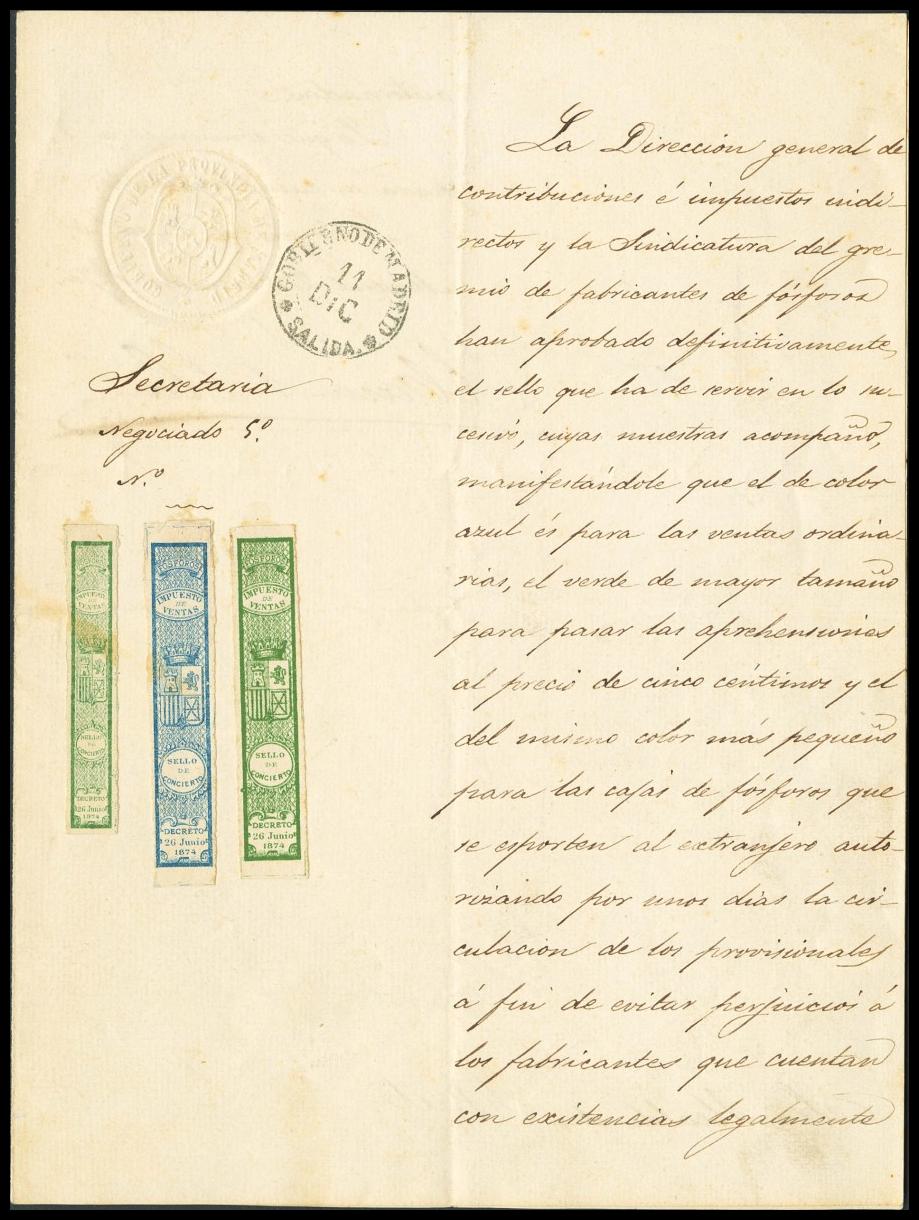 GOBIERNO DE LA PROVINCIA DE MADRID
GOBIERNO DE MADRID
11
DIC
SALIDA.
Secretaria
Negociado 5º.
N.º
IMPUESTO
DE
VENTAS
SELLO
DE
CONCIERTO
DECRETO
26 Junio
1874
FOSFOROS
IMPUESTO
DE
VENTAS
SELLO
DE
CONCIERTO
DECRETO
26 Junio
1874
FOSFOROS
IMPUESTO
DE
VENTAS
SELLO
DE
CONCIERTO
DECRETO
26 Junio
1874
La Dirección general de
contribuciones é impuestos indi-
rectos y la Sindicatura del gre-
mio de fabricantes de fósforos
han aprobado definitivamente,
el sello que ha de servir en lo su-
cesivo, cuyas muestras acompaño,
manifestándole que el de color
azul és para las ventas ordina-
rias, el verde de mayor tamaño
para pasar las aprehensiones
al precio de cinco céntimos y el
del mismo color más pequeño
para las cajas de fósforos que
se esporten al extranjero auto-
rizando por unos dias la cir-
culacion de los provisionales
á fin de evitar perjuicios á
los fabricantes que cuentan
con existencias legalmente